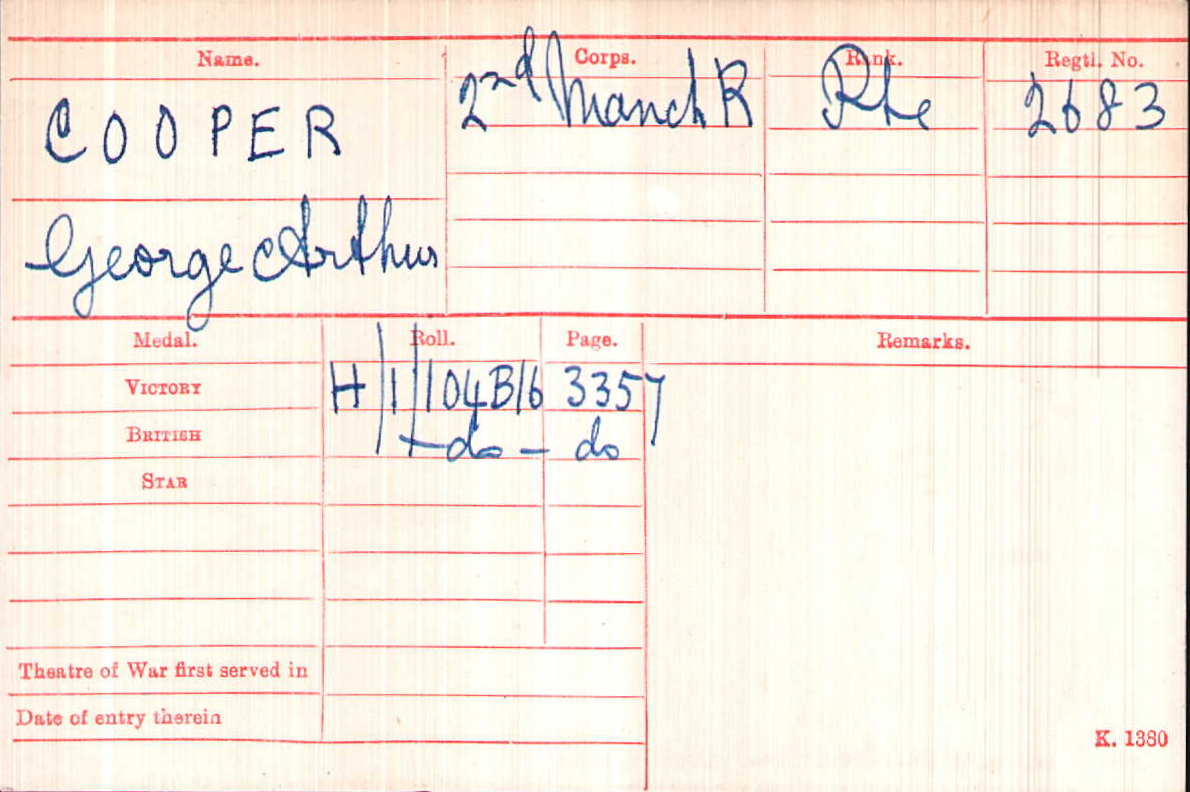 Name. Corps. Rank. Regtl. No.
COOPER 2nd Manch R Pte 2683
George Arthur
Medal. Roll. Page. Remarks.
VICTORY H/1/104B16 3357
BRITISH -do- do
STAR
Theatre of War first served in
Date of entry therein
K. 1380